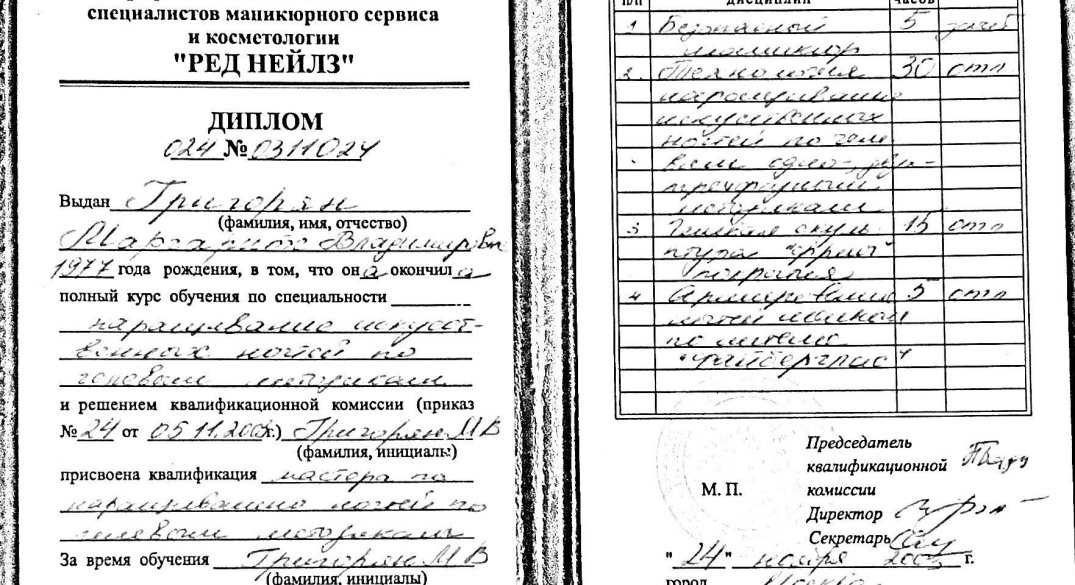 специалистов маникюрного сервиса
и косметологии
"РЕД НЕЙЛЗ"
ДИПЛОМ
024 № 0311024
Выдан Григорян
(фамилия, имя, отчество)
Маргарита Владимировна
1977 года рождения, в том, что она окончила
полный курс обучения по специальности
наращивание искусст-
венных ногтей по
гелевым методикам
и решением квалификационной комиссии (приказ
№ 24 от 05.11.2003г.) Григорян М В
(фамилия, инициалы)
присвоена квалификация мастера по
наращиванию ногтей по
гелевым методикам
За время обучения Григорян М В
(фамилия, инициалы)
п/п дисциплин часов
1 Безопасный 5 зачёт
маникюр
2. Технология 30 отл
наращивания
искусственных
ногтей по геле-
вым одно-, двух-
трехфазным
методикам
3 Гелевая скуль- 15 отл
птура "френч"
покрытия
4 Армирование 5 отл
ногтей
"Файберглас"
Председатель
квалификационной
М. П. комиссии
Директор
Секретарь
"24" ноября 2003 г.
город Москва